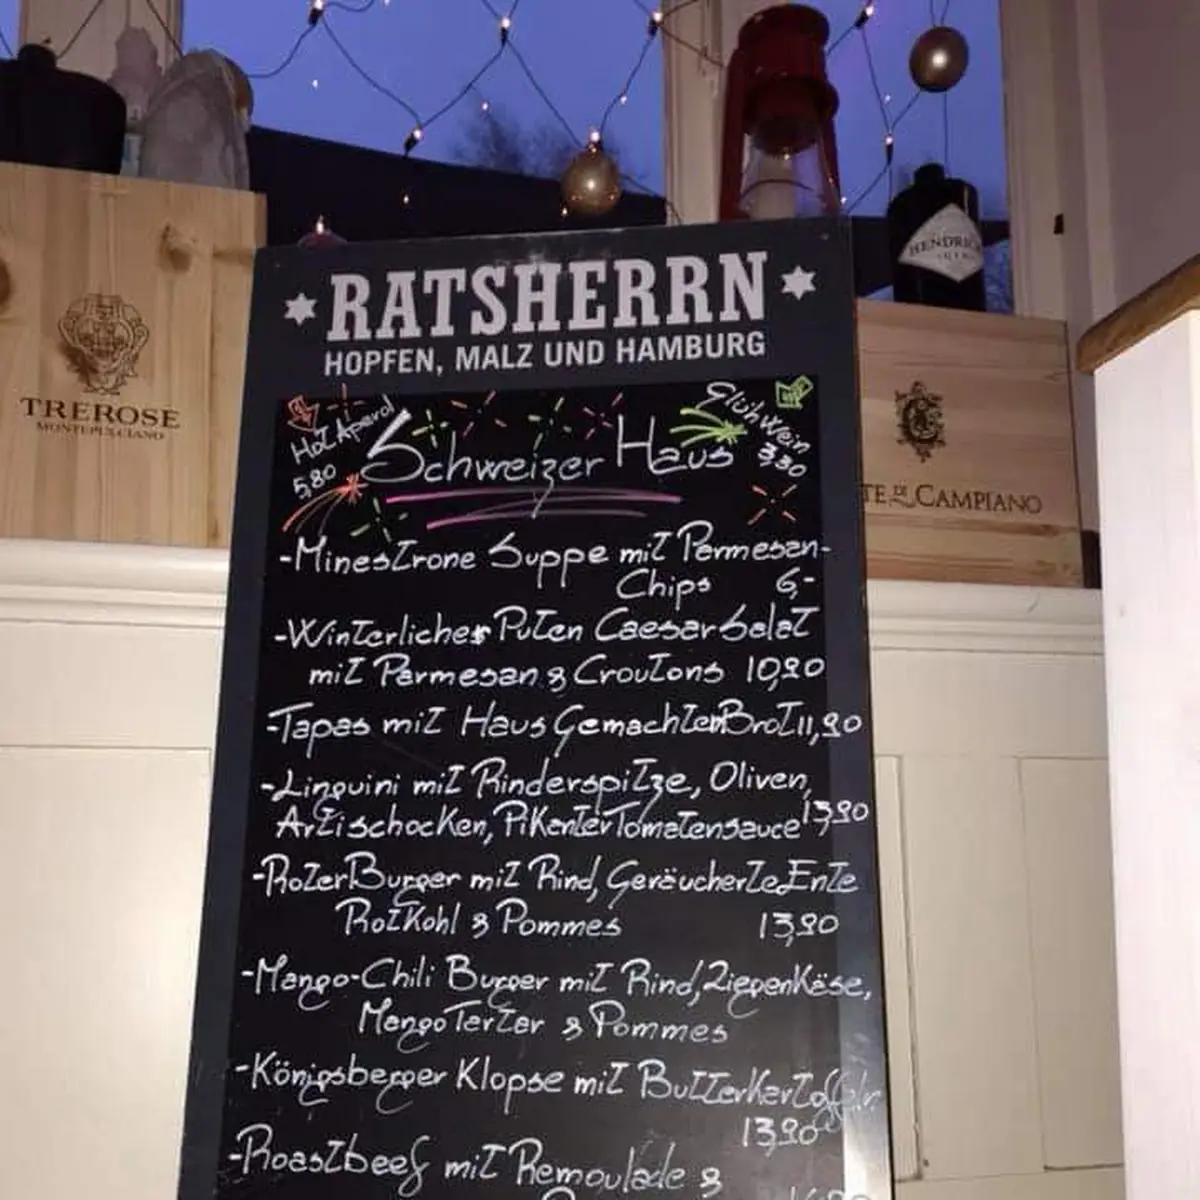 HENDRICK
GIN
RATSHERRN
HOPFEN, MALZ UND HAMBURG
TREROSE
MONTEPULCIANO
TE DI CAMPIANO
Hot Aperol
5,80
Schweizer Haus
Glühwein
3,30
-Minestrone Suppe mit Parmesan-
Chips 6,-
-Winterlicher Puten Caesar Salat
mit Parmesan & Croutons 10,90
-Tapas mit Haus Gemachten Brot 11,90
-Linguini mit Rinderspitze, Oliven,
Artischocken, Pikanter Tomatensauce 13,90
-Roter Burger mit Rind, Geräucherte Ente
Rotkohl & Pommes 13,90
-Mango-Chili Burger mit Rind, Ziegenkäse,
Mango Tartar & Pommes
-Königsberger Klopse mit Butterkartoffeln
13,90
-Roastbeef mit Remoulade &